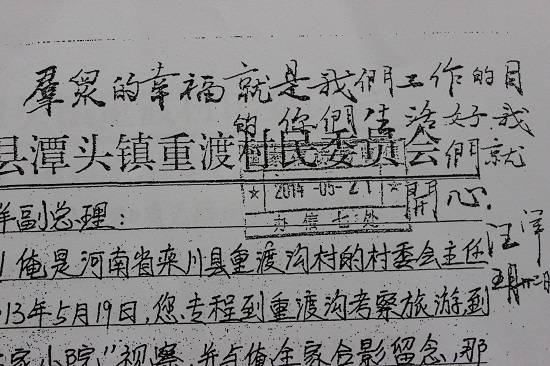 羣眾的幸福就是我們工作的目
的 你們生活好 我們就
開心.
汪洋
县潭头镇重渡村民委员会
★ 2014-05-21 ★
办信七处
洋副总理：
俺是河南省栾川县重渡沟村的村委会主任
013年5月19日，您专程到重渡沟考察旅游，到
家小院"视察，并与俺全家合影留念，那